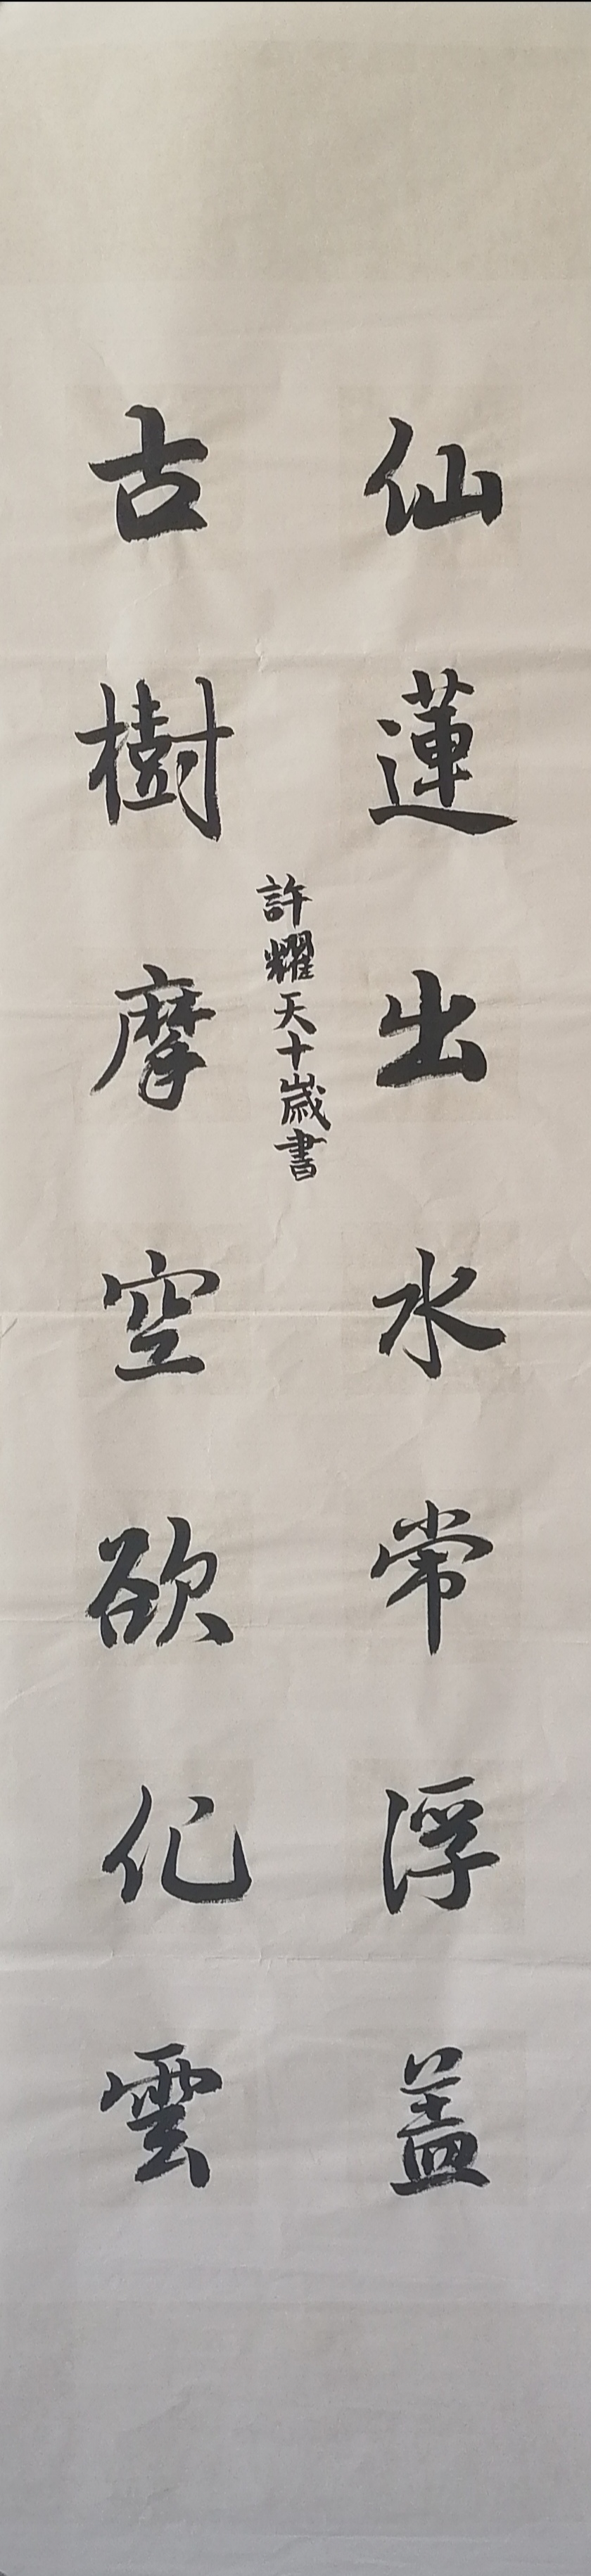 仙蓮出水常浮蓋
古樹摩空欲化雲
許耀天十歲書